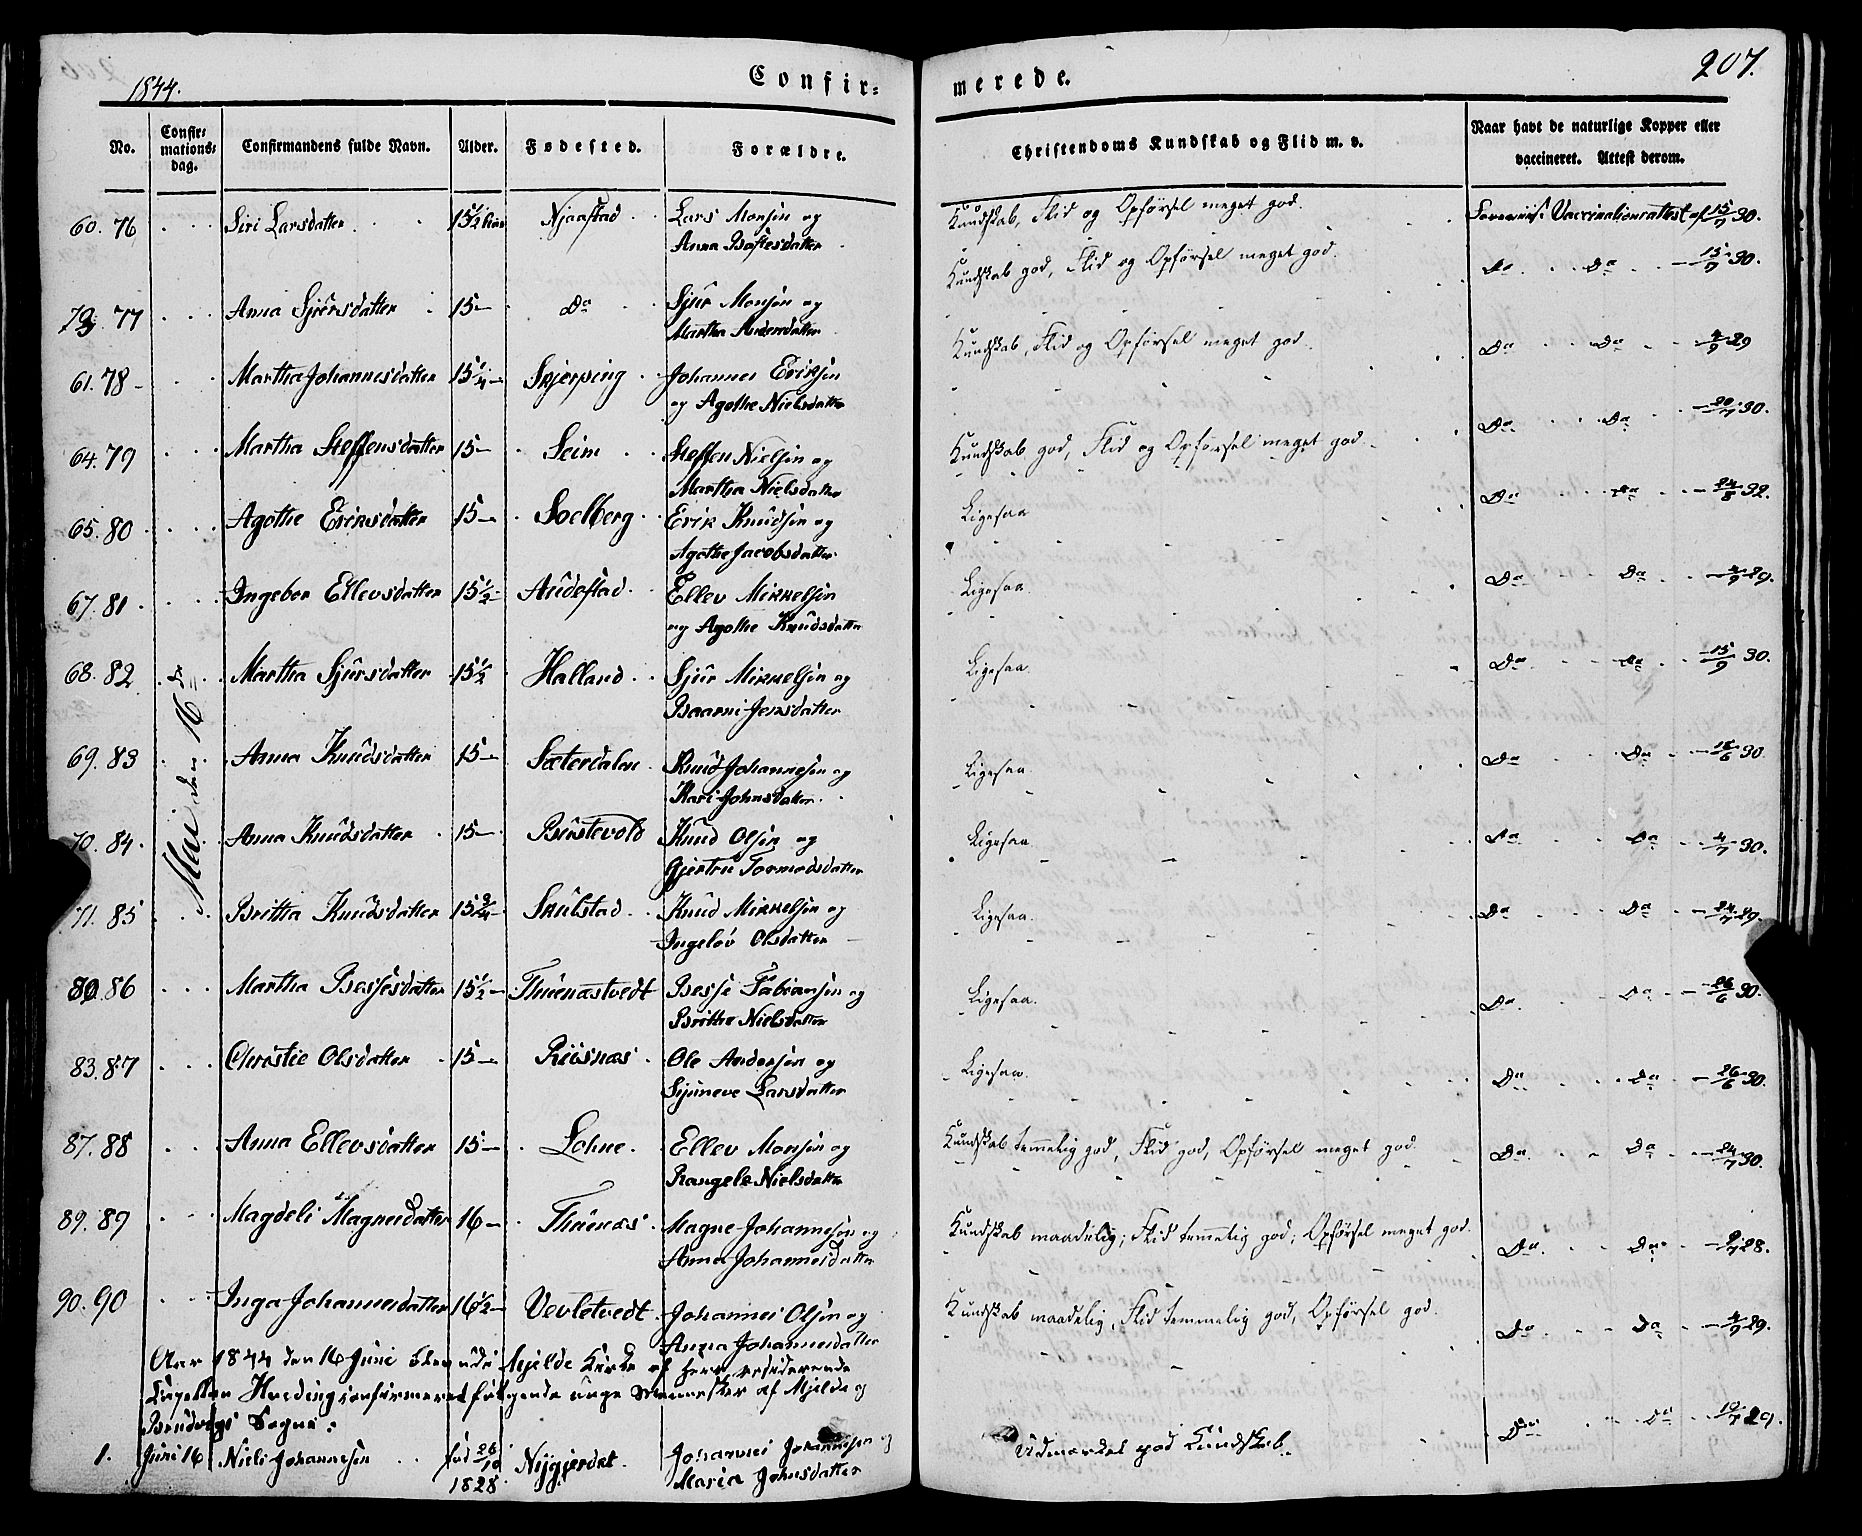 1844. Confir= merede. 207.
No. Confir= mations= dag. Confirmandens fulde Navn. Alder. Fødested. Forældre. Christendoms Kundskab og Flid m. v. Naar havt de naturlige Kopper eller vaccineret. Attest derom.
60. 76 Siri Larsdatter 15 1/2 Njaastad Lars Monsen og Kundskab, Flid og Opførsel meget god. Vaccinationsattest af 15/9 30.
Anna Bottesdatter
79. 77 Anna Sjursdatter 15 Do Sjur Monsen og Kundskab god, Flid og Opførsel meget god. Do Do 15/9 30.
Martha
61. 78 Martha Johannesdatter 15 1/4 Skjerping Johannes Eriksen Kundskab, Flid og Opførsel meget god. Do Do 4/9 29
og Agothe Nielsdatter
64. 79 Martha Steffensdatter 15 Seim Steffen Nielsen og Kundskab god, Flid og Opførsel meget god Do Do 20/7 30.
Martha Nielsdatter
65. 80 Agothe Eriksdatter 15 Soelberg Erik Knudsen og Ligesaa Do Do 24/8 32.
Agothe Jacobsdatter
67. 81 Ingebor Ellevsdatter 15 1/2 Audestad Ellev Mikkelsen Ligesaa. Do Do 4/9 29.
og Agothe Knudsdatter
68. 82 Martha Sjursdatter 15 1/2 Halland Sjur Mikkelsen og Ligesaa. Do Do 15/9 30.
Baarni Jensdatter
69. 83 Mai den 16de Anna Knudsdatter 15 Sæterdalen Knud Johannesen og Ligesaa Do Do 18/6 30.
Kari Johnsdatter
70. 84. Anna Knudsdatter 15 Brustevold Knud Olsen og Ligesaa Do Do 4/7 30.
Gjertru Tormodsdatter
71. 85 Britha Knudsdatter 15 3/4 Skulstad Knud Mikkelsen og Ligesaa. Do Do 24/7 29.
Ingelev Olsdatter
80. 86 Martha Bessesdatter 15 1/2 Thuenæstvedt Besse Fabiansen og Ligesaa. Do Do 26/6 30.
Brithe Nielsdatter
83. 87 Christie Olsdatter 15 Riisnæs Ole Andersen og Ligesaa. Do Do 26/6 30.
Sijneve Larsdatter
87. 88 Anna Ellevsdatter 15 Lohne. Ellev Monsen og Kundskab temmelig god, Flid god, Opførsel meget god Do Do 24/7 30.
Rangele Nielsdatter
89. 89 Magdeli Magnesdatter 16 Thuenæs Magne Johannesen og Kundskab maadelig; Flid temmelig god; Opførsel meget god. Do Do 2/7 28.
Anna Johannesdatter
90. 90 Inga Johannesdatter 16 1/2 Vevletvedt Johannes Olsen og Kundskab maadelig, Flid temmelig god, Opførsel god. Do Do 4/9 29.
Anna Johannesdatter
Aar 1844 den 16 Juni blev udi Mjelde Kirke af Herr residerende
Capellan Hvedingconfirmeret følgende unge Mennesker af Mjelde og
Bruviigs Sogne:
1. Juni 16 Niels Johannesen fød 26/10 1828 Nijgjerdet Johannes Johannesen og Udmærket god Kundskab. Do Do 10/7 29.
Maria Johnsdatter